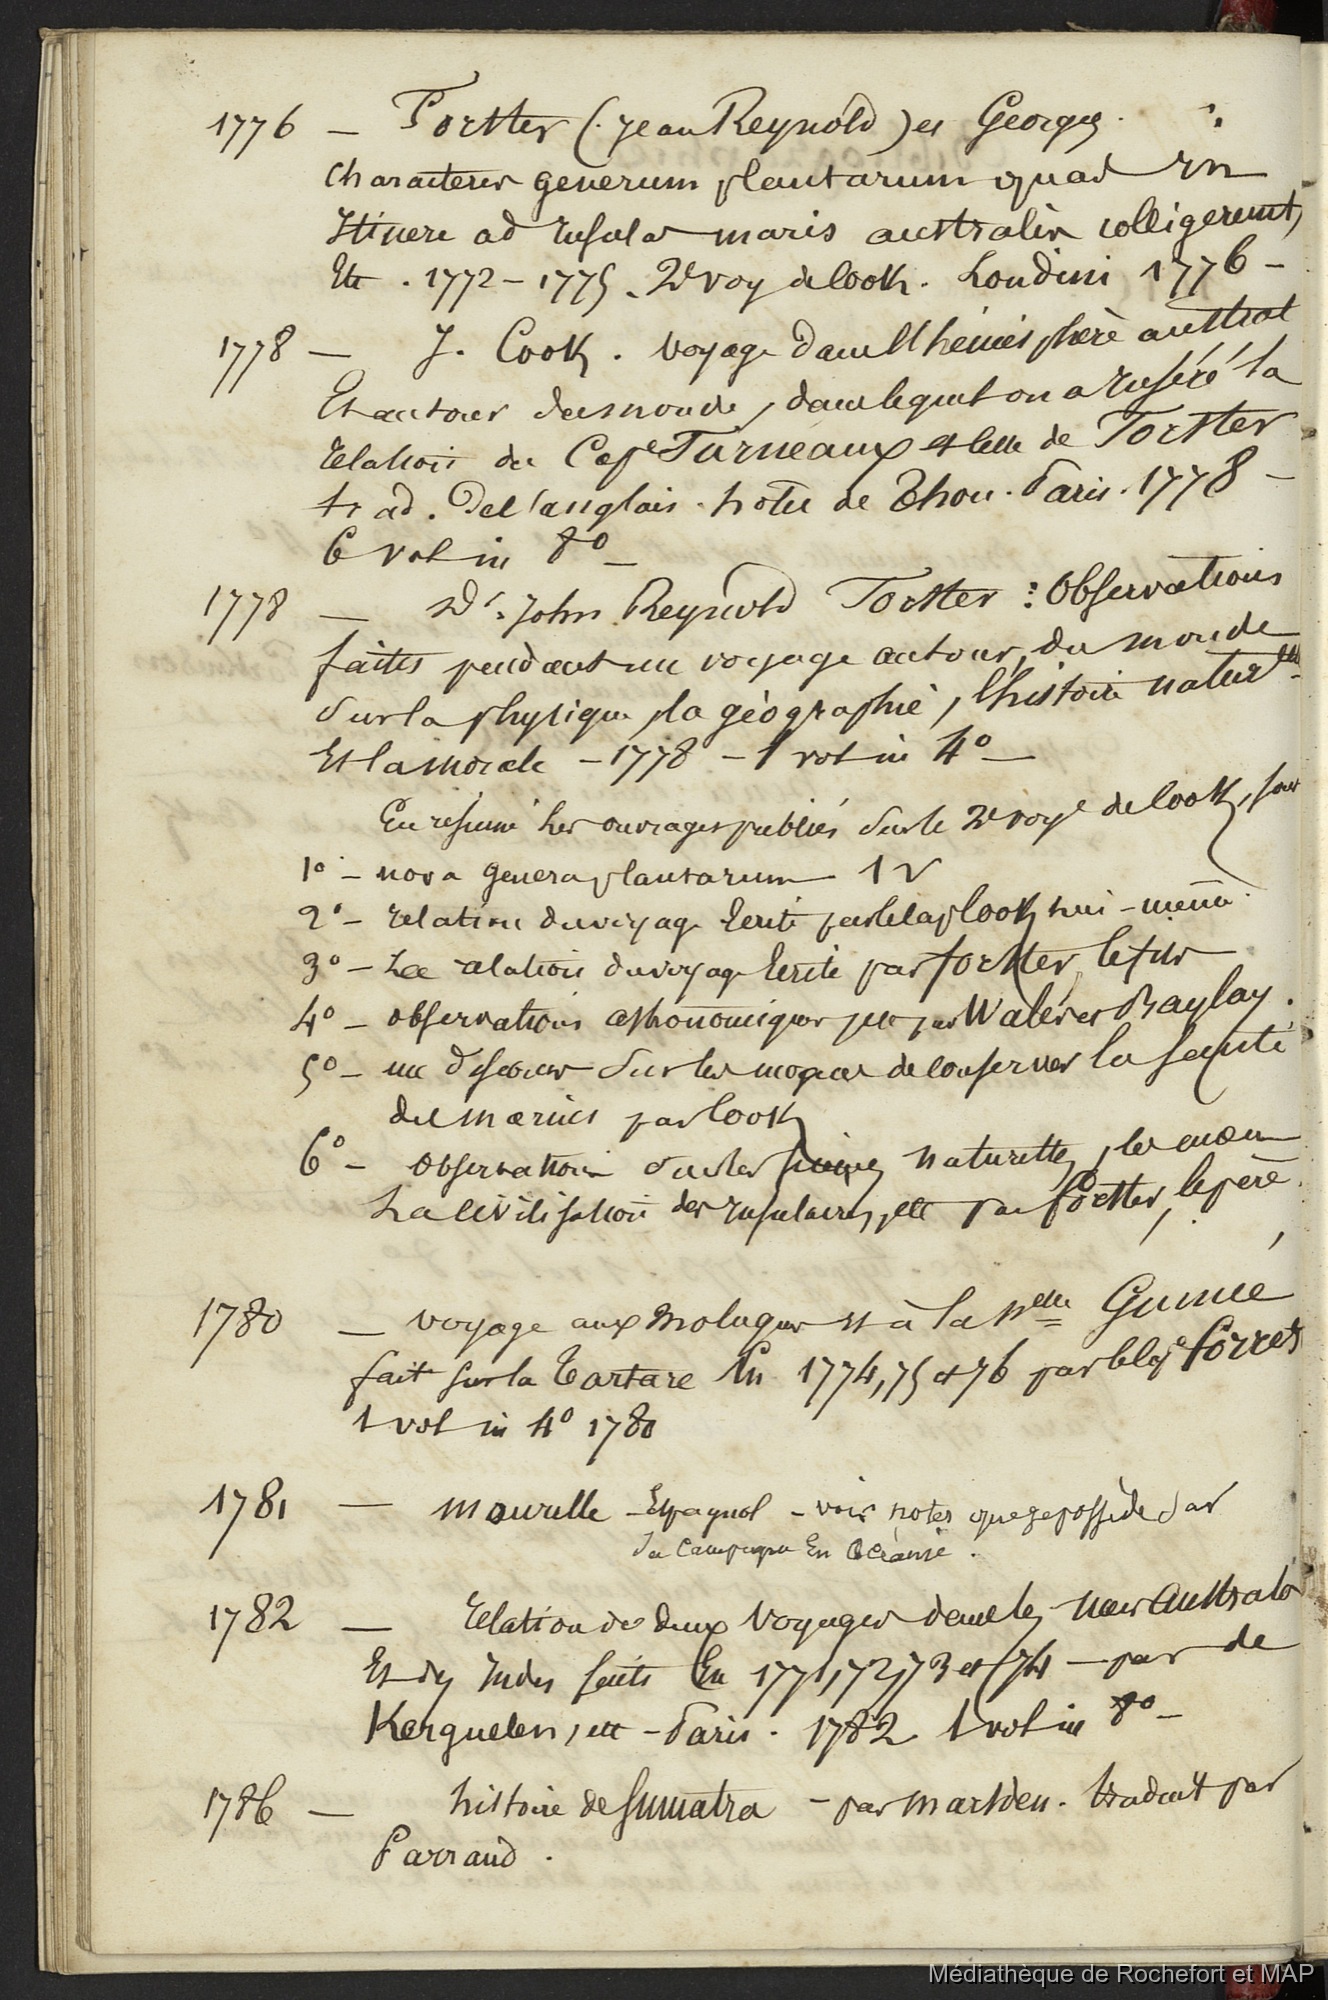 1776 — Forster (Jean Reynold) et Georges :
Characteres generum plantarum quas in
Itinere ad Insulas maris australis colligerunt,
Etc. 1772 – 1775. 2e voy de Cook. Londini 1776 –
1778 — J. Cook. Voyage dans l'hémisphère austral
Et autour du monde, dans lequel on a inséré la
relation du Cape Furneaux et celle de Forster
trad. de l'anglais. hotel de Thou. Paris. 1778 –
6 vol in 8° –
1778 — Dr. John Reynold Forster : Observations
faites pendant un voyage autour du monde
sur la physique, la géographie, l'histoire naturelle
Et la morale – 1778 – 1 vol in 4° –
En résumé les ouvrages publiés sur le 2e voye de Cook, sont
1° – nova genera plantarum 1 v
2° – relation du voyage Ecrite par le Cap Cook lui-même
3° – La relation du voyage Ecrite par forster le fils
4° – observations astronomiques par Wales et Baylay.
5° – un discours sur les moyens de conserver la santé
des marins par Cook
6° – observations sur les naturelles, les moeurs
La civilisation des insulaires, etc par forster, le père.
1780 — Voyage aux Moluques et à la Nelle Guinée
fait sur la Tartare En 1774, 75 et 76 par le Cape forrest
1 vol in 4° 1780
1781 — Maurelle – Espagnol – voir notes que je possède sur
sa Campagne En Océanie.
1782 — Relation de deux Voyages dans les mers Australes
Et des Indes faits En 1771, 72, 73 et 74 – par de
Kerguelen, etc – Paris. 1782 1 vol in 8° –
1786 — histoire de Sumatra – par Marsden. traduit par
Parraud.
Médiathèque de Rochefort et MAP